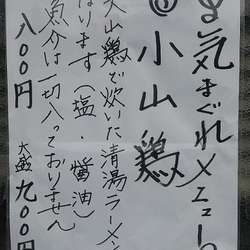 気まぐれメニュー
小山鶏
大山鶏で炊いた清湯ラーメン
なります（塩・醤油）
魚介は一切入っておりません
八〇〇円 大盛九〇〇円